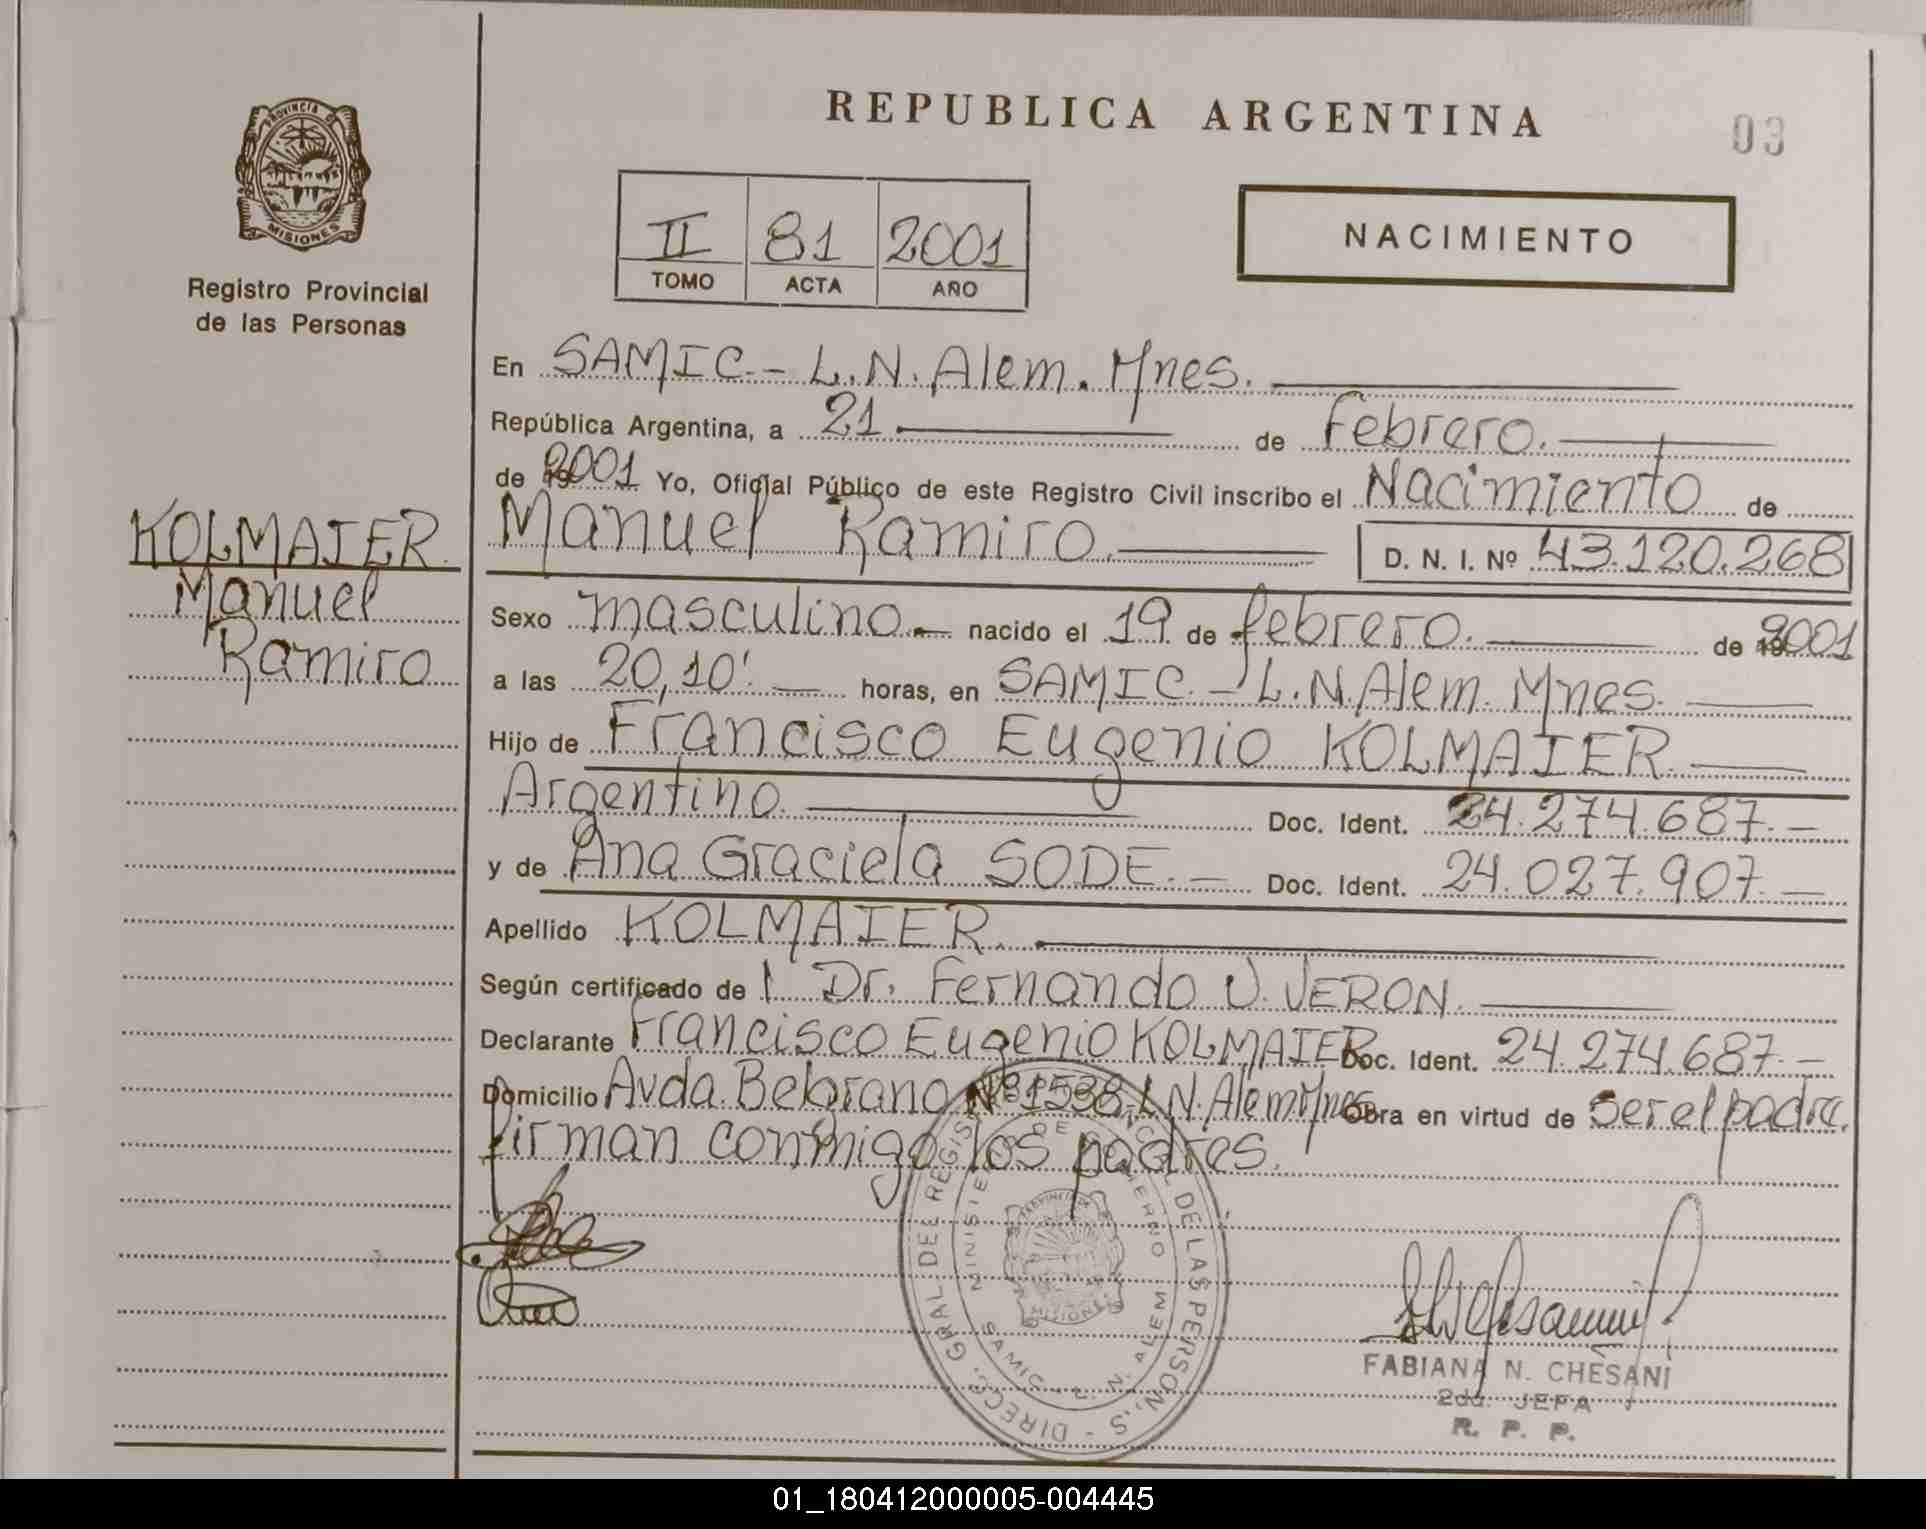 REPUBLICA ARGENTINA
03
PROVINCIA DE
MISIONES
Registro Provincial
de las Personas
II 81 2001
TOMO ACTA AÑO
NACIMIENTO
En SAMIC.- L.N. Alem. Mnes.
República Argentina, a 21 de Febrero.
de 2001 Yo, Oficial Público de este Registro Civil inscribo el Nacimiento de
Manuel Ramiro. D. N. I. Nº 43.120.268
KOLMAIER
Manuel
Ramiro
Sexo masculino.- nacido el 19 de febrero. de 2001
a las 20,10' horas, en SAMIC.- L.N. Alem. Mnes.
Hijo de Francisco Eugenio KOLMAIER.
Argentino. Doc. Ident. 24.274.687.-
y de Ana Graciela SODE.- Doc. Ident. 24.027.907.-
Apellido KOLMAIER.
Según certificado de l Dr. Fernando V. VERON.
Declarante Francisco Eugenio KOLMAIER Doc. Ident. 24.274.687.-
Domicilio Avda. Belgrano Nº 1538, L.N. Alem Mnes Obra en virtud de ser el padre.
Firman conmigo los padres.
DIRECC. GRAL DEL REGISTRO PROVINCIAL DE LAS PERSONAS
MINISTERIO DE GOBIERNO
PROVINCIA DE
MISIONES
SAMIC - L. N. ALEM
FABIANA N. CHESANI
2da. JEFA
R. P. P.
01_180412000005-004445